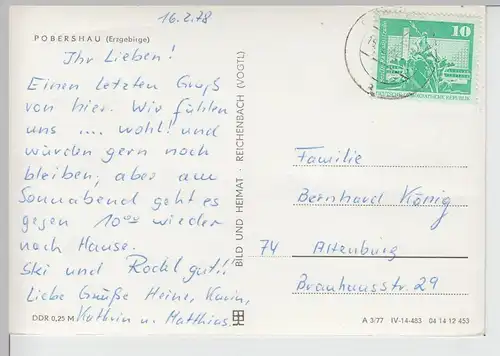 16.2.78
POBERSHAU (Erzgebirge)
Ihr Lieben!
Einen letzten Gruß
von hier. Wir fühlen
uns .... wohl! und
würden gern noch
bleiben, aber am
Sonnabend geht es
gegen 10⁰⁰ wieder
nach Hause.
Ski und Rodel gut!!
Liebe Grüße Heiner, Karin,
Kathrin u. Matthias.
DDR 0,25 M
BILD UND HEIMAT · REICHENBACH (VOGTL)
10
Familie
Bernhard König
74 Altenburg
Brauhausstr. 29
A 3/77 IV-14-483 04 14 12 453